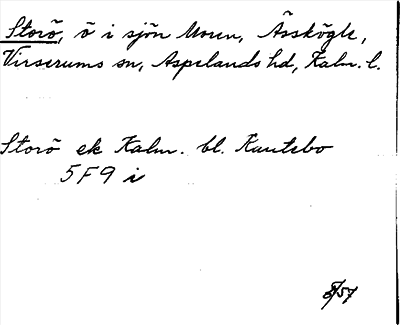 Storö, ö i sjön Moren, Åsskögle,
Virserums sn, Aspelands hd, Kalm. l.
Storö ek Kalm. bl. Kuntebo
5F9 i
8/57